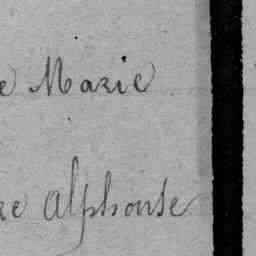 e Marie
re Alphonse